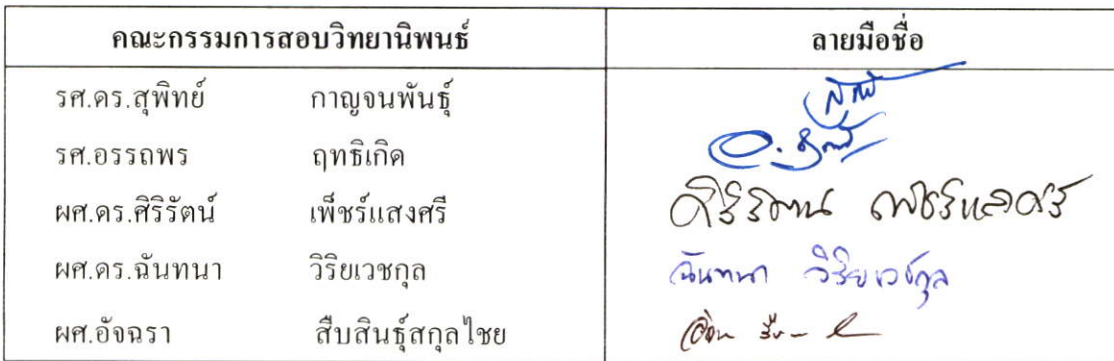 คณะกรรมการสอบวิทยานิพนธ์ ลายมือชื่อ
รศ.ดร.สุพิทย์ กาญจนพันธุ์
รศ.อรรถพร ฤทธิเกิด
ผศ.ดร.ศิริรัตน์ เพ็ชร์แสงศรี ศิริรัตน์ เพ็ชร์แสงศรี
ผศ.ดร.ฉันทนา วิริยเวชกุล ฉันทนา วิริยเวชกุล
ผศ.อัจฉรา สืบสินธุ์สกุลไชย